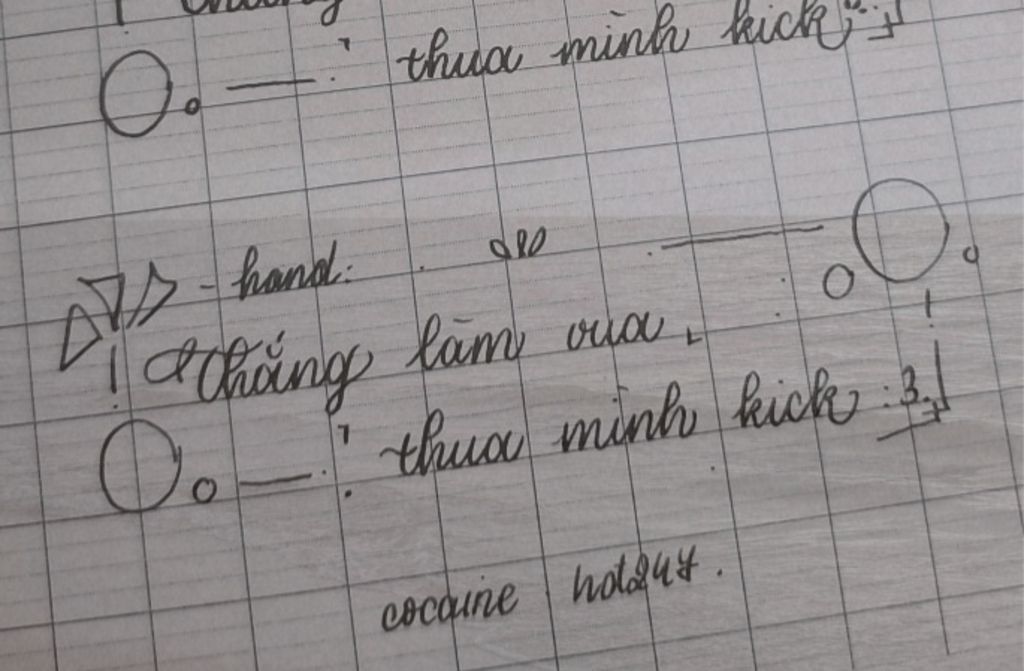 thua mình kick
- hand:
thắng làm vua,
thua mình kick :3
cocaine hotguy.